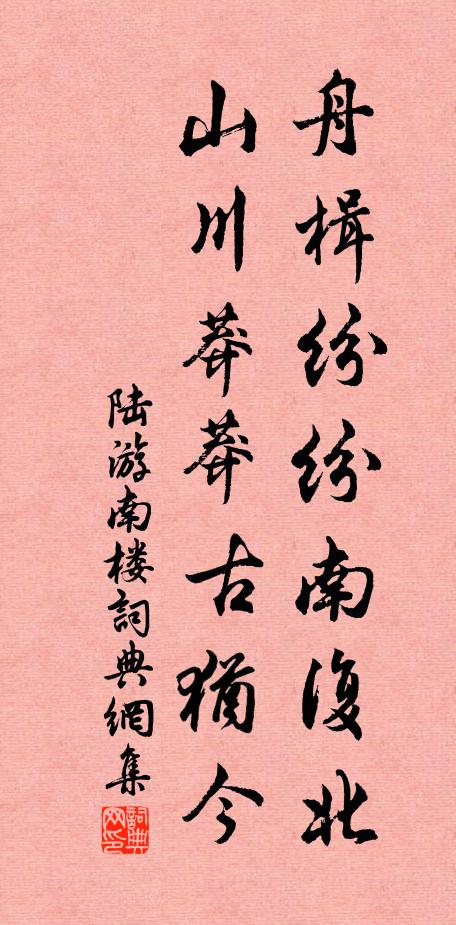 舟楫纷纷南復北
山川莽莽古猶今
陆游南楼詞典網集
詞典网印